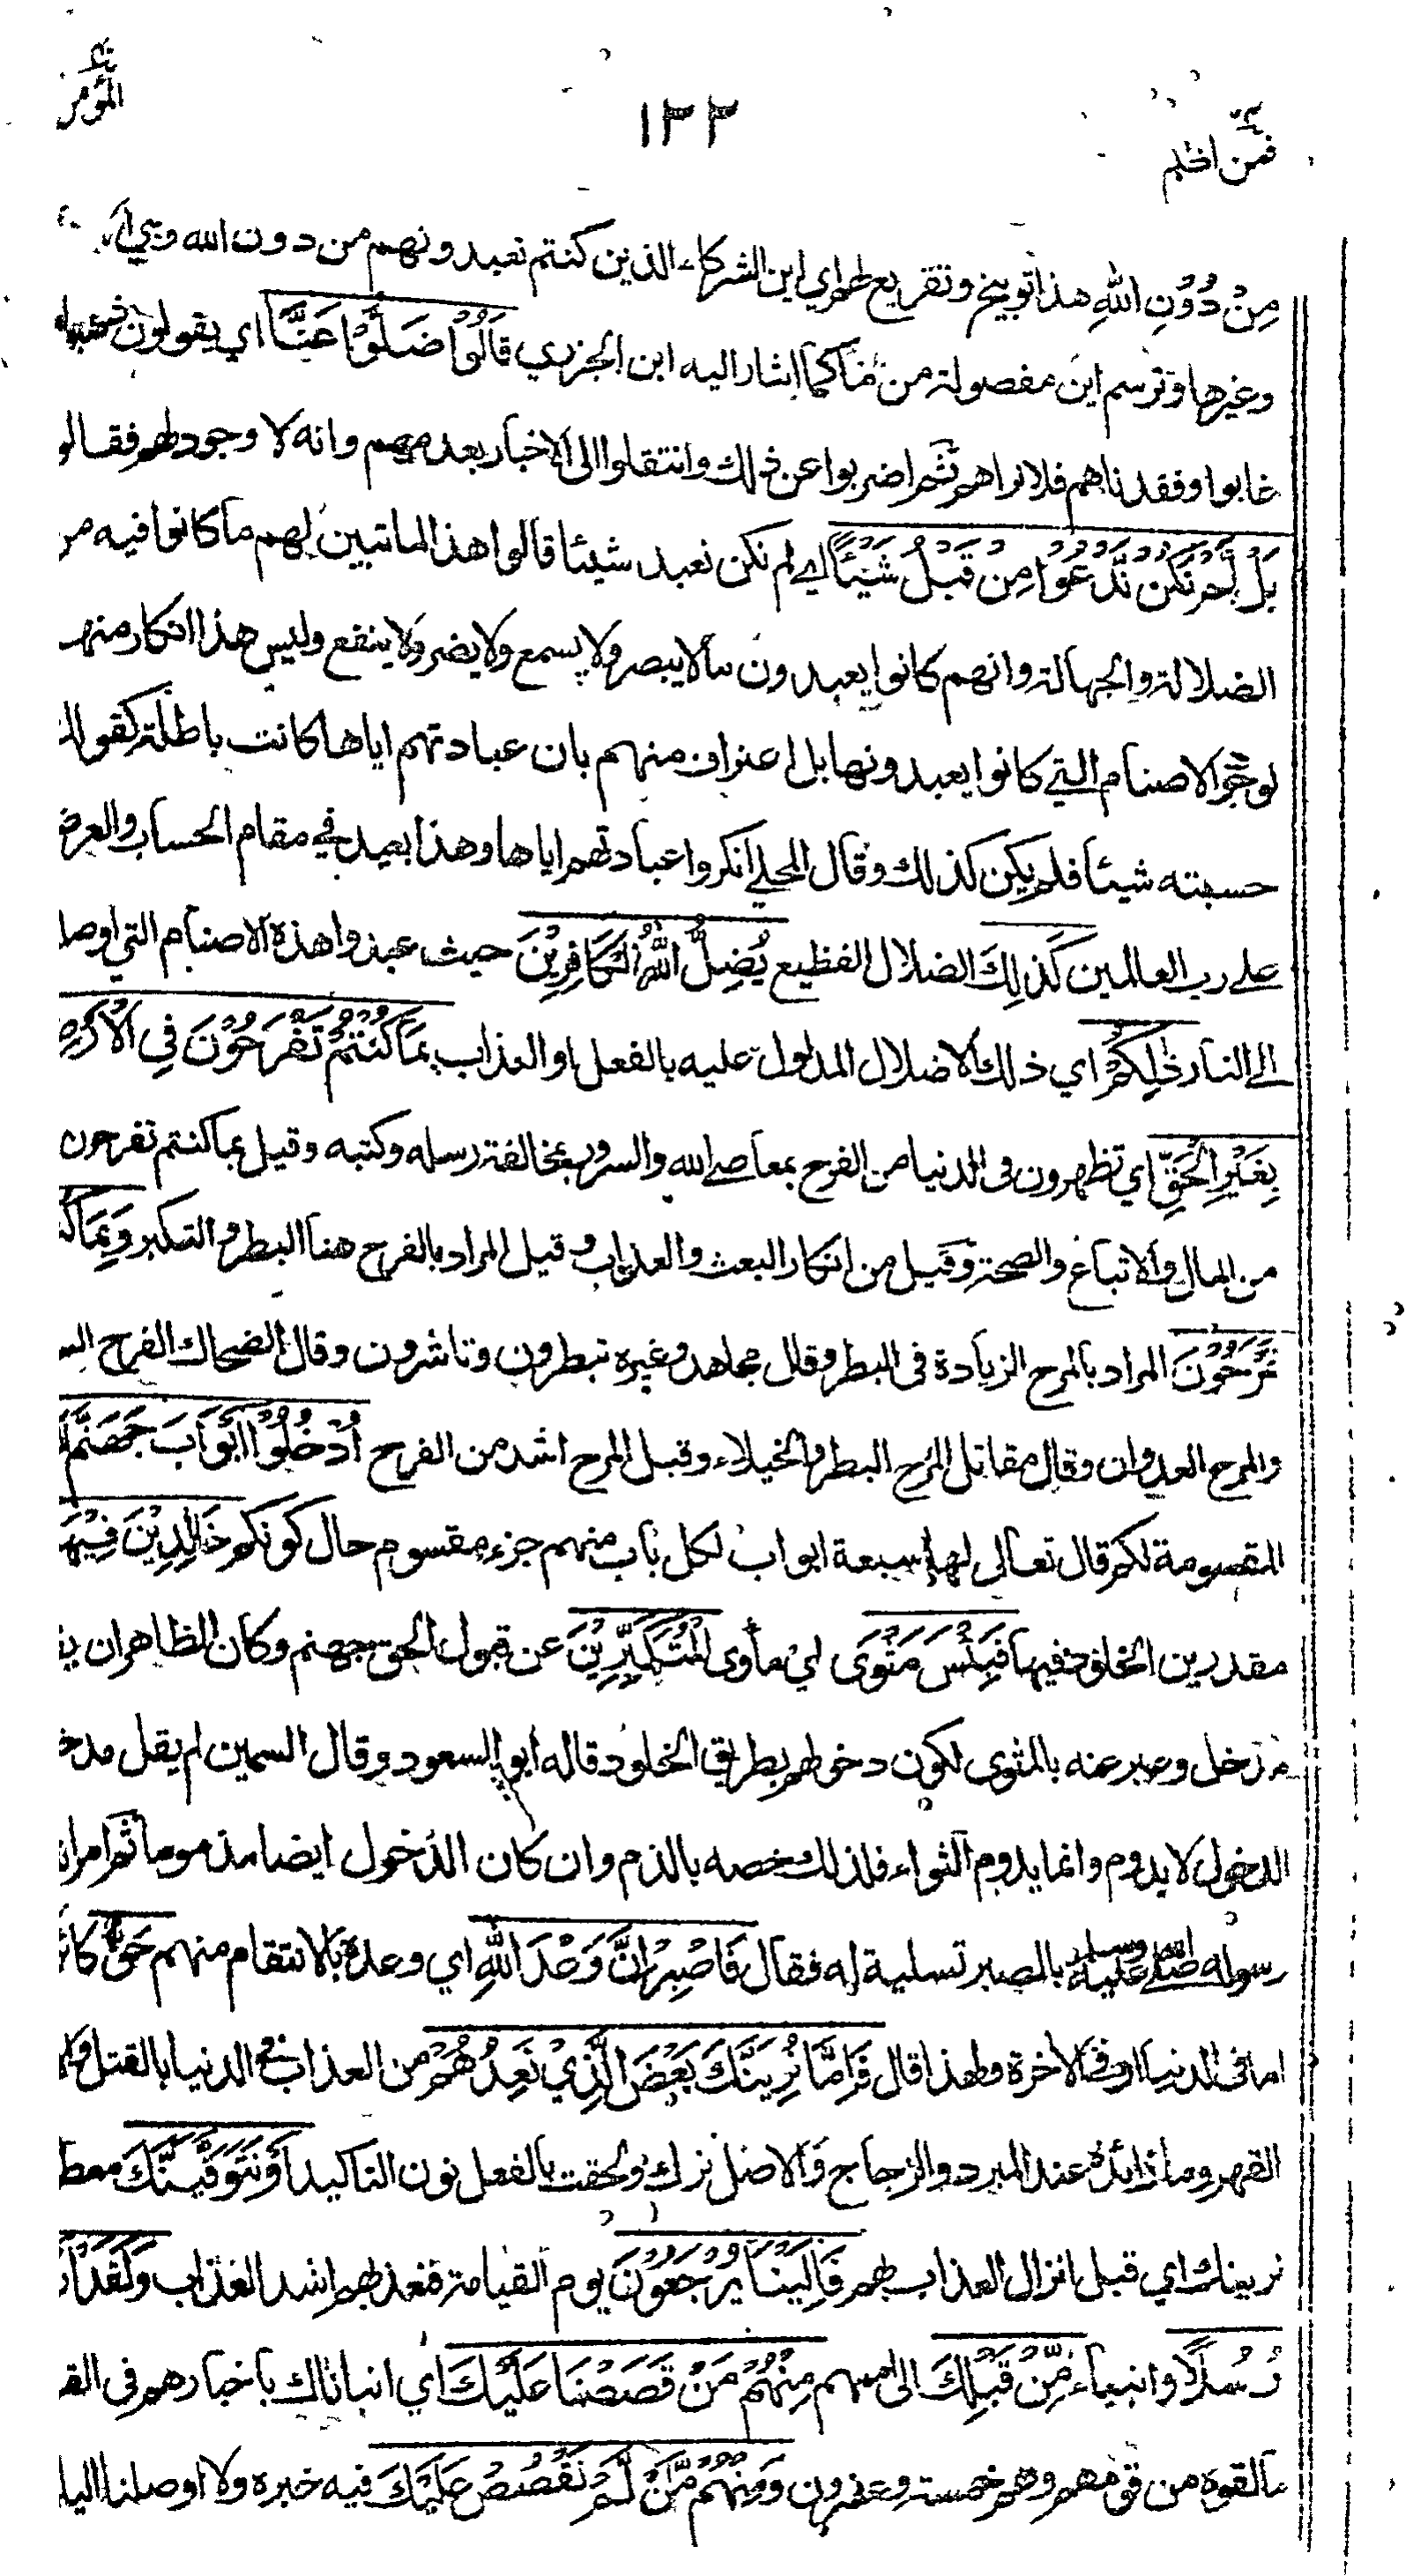 المؤمن
١٣٣
فمن اظلم
مِنْ دُوْنِ اللهِ هذا توبيخ وتقريع لهم اي اين الشركاء الذين كنتم تعبدونهم من دون الله وهي
وغيرها وترسم اين مفصولة من ما كما اشار اليه ابن الجزري قَالُوْا ضَلُّوْا عَنَّا اي يقولون
غابوا وفقدناهم فلا نراهم ثم اضربوا عن ذلك وانتقلوا الى الاخبار بعدمهم وانه لا وجود لهم فقالو
بَلْ لَّمْ نَكُنْ نَّدْعُوْا مِنْ قَبْلُ شَيْئًا اي لم نكن نعبد شيئا قالوا هذا لما تبين لهم ما كانوا فيه من
الضلالة والجهالة وانهم كانوا يعبدون ما لا يبصر ولا يسمع ولا يضر ولا ينفع وليس هذا انكار منهم
لوجود الاصنام التي كانوا يعبدونها بل اعتراف منهم بان عبادتهم اياها كانت باطلة كقولك
حسبته شيئا فلم يكن كذلك وقال المحلي انكروا عبادتهم اياها وهذا بعيد في مقام الحساب والعرض
على رب العالمين كَذٰلِكَ الضلال الفظيع يُضِلُّ اللّٰهُ الْكَافِرِيْنَ حيث عبدوا هذه الاصنام التي اوصل
الى النار ذٰلِكُمْ اي ذلك الاضلال المدلول عليه بالفعل او العذاب بِمَا كُنْتُمْ تَفْرَحُوْنَ فِي الْاَرْضِ
بِغَيْرِ الْحَقِّ اي تظهرون في الدنيا من الفرح بمعاصي الله والسرور بمخالفة رسله وكتبه وقيل بما كنتم تفرحون
من المال والاتباع والصحة وقيل من انكار البعث والعذاب وقيل المراد بالفرح هنا البطر والتكبر وَبِمَا كُ
تَمْرَحُوْنَ المراد بالمرح الزيادة في البطر وقال مجاهد وغيره تبطرون وتاشرون وقال الضحاك الفرح الس
والمرح العدوان وقال مقاتل المرح البطر والخيلاء وقيل المرح اشد من الفرح اُدْخُلُوْا اَبْوَابَ جَهَنَّمَ
المقسومة لكم قال تعالى لها سبعة ابواب لكل باب منهم جزء مقسوم حال كونكم خَالِدِيْنَ فِيْهَا
مقدرين الخلود فيها فَبِئْسَ مَثْوَى اي مأوى الْمُتَكَبِّرِيْنَ عن قبول الحق جهنم وكان الظاهر ان ي
مدخل وعبر عنه بالمثوى لكون دخولهم بطريق الخلود قاله ابو السعود وقال السمين لم يقل مدخ
الدخول لا يدوم وانما يدوم الثواء فلذلك خصه بالذم وان كان الدخول ايضا مذموما ثم امر الله
رسوله صلى الله عليه وسلم بالصبر تسلية له فقال فَاصْبِرْ اِنَّ وَعْدَ اللّٰهِ اي وعده بالانتقام منهم حَقٌّ كائن
اما في الدنيا او في الاخرة ولهذا قال فَاِمَّا نُرِيَنَّكَ بَعْضَ الَّذِيْ نَعِدُهُمْ من العذاب في الدنيا بالقتل وال
القهر وما زائدة عند المبرد والزجاج والاصل نرك ولحقت بالفعل نون التاكيد اَوْ نَتَوَفَّيَنَّكَ معط
نرينك اي قبل انزال العذاب بهم فَاِلَيْنَا يُرْجَعُوْنَ يوم القيامة فنعذبهم اشد العذاب وَلَقَدْ اَر
رُسُلًا وانبياء مِّنْ قَبْلِكَ الى اممهم مِنْهُمْ مَنْ قَصَصْنَا عَلَيْكَ اي انبأناك باخبارهم في القر
من قومهم وهم خمسة وعشرون وَمِنْهُمْ مَّنْ لَّمْ نَقْصُصْ عَلَيْكَ فيه خبره ولا اوصلنا اليك